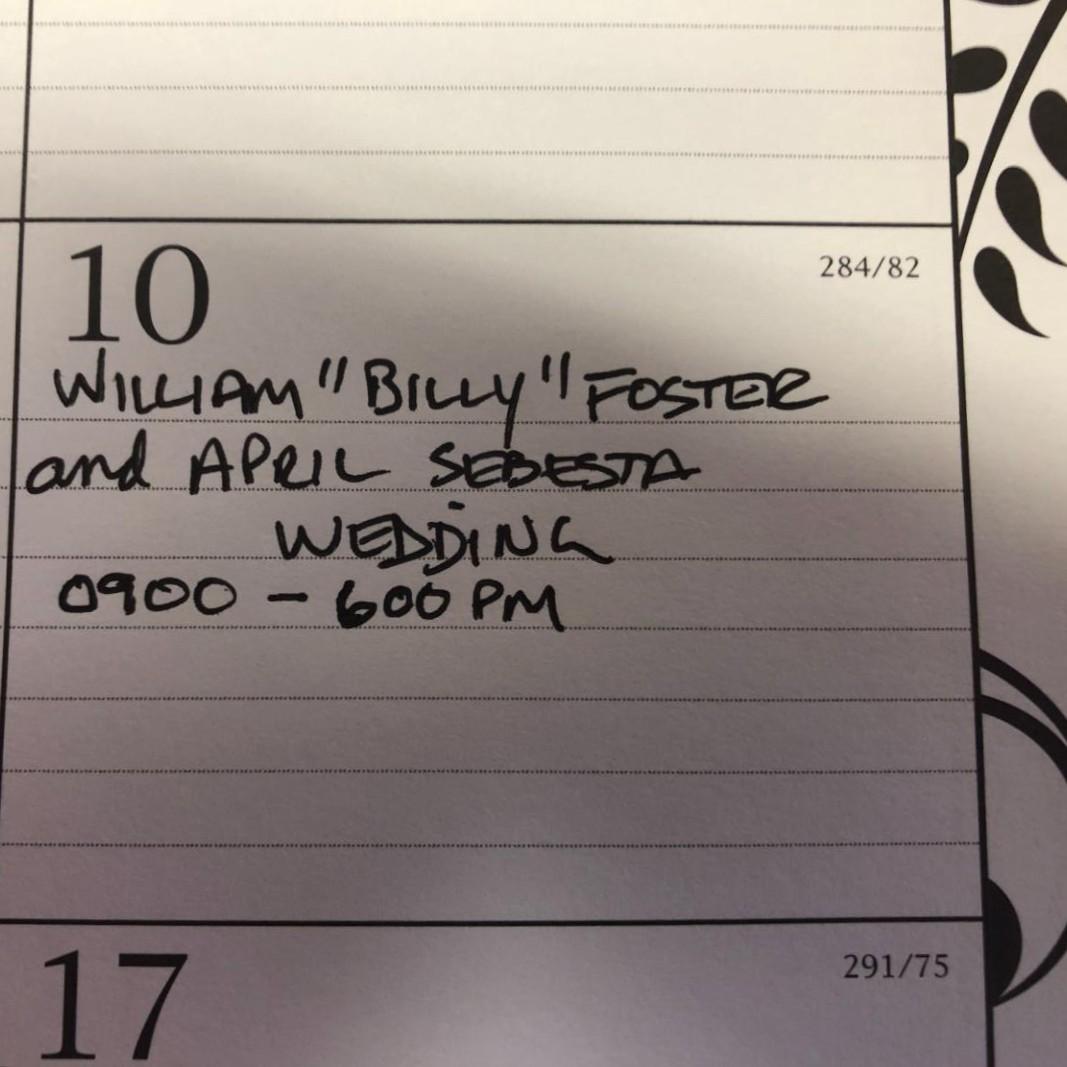 10 284/82
WILLIAM "BILLY" FOSTER
and APRIL SEBESTA
WEDDING
0900 - 600 PM
17 291/75